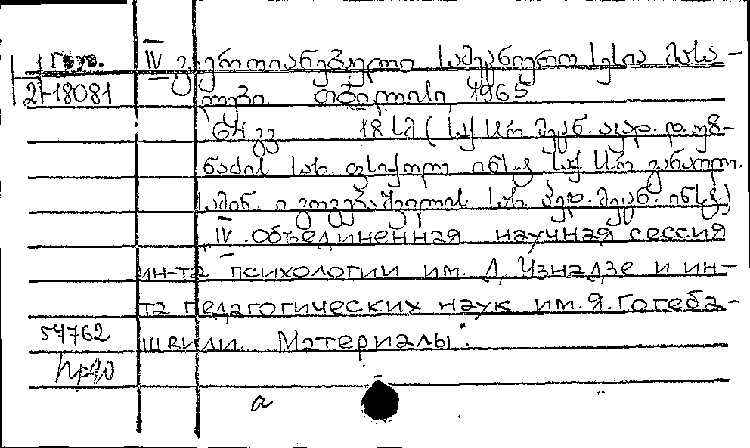 1 Груз.
IV გაერთიანებული სამეცნიერო სესია მასა-
2-18081
ლები. თბილისი, 1965
64 გვ 18 სმ (საქ სსრ მეცნ. აკად. დ. უზ-
ნაძის სახ. ფსიქოლ. ინსტ. საქ. სსრ განათლ.
სამინ. ი. გოგებაშვილის სახ. პედ. მეცნ. ინსტ.)
IV Объединенная научная сессия
ин-та психологии им. Д. Узнадзе и ин-
та педагогических наук им. Я. Гогеба-
54762
швили. Материалы.
а